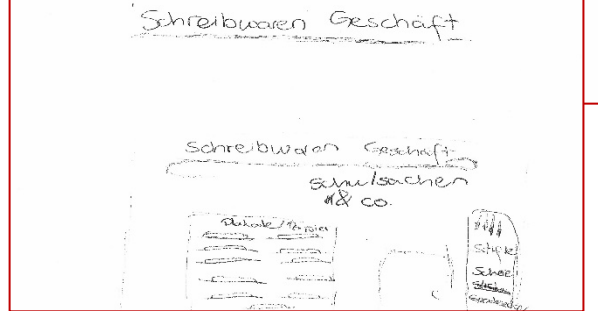 Schreibwaren Geschäft
Schreibwaren Geschäft
Schulsachen
& co.
Plakate / Papier
Stifte